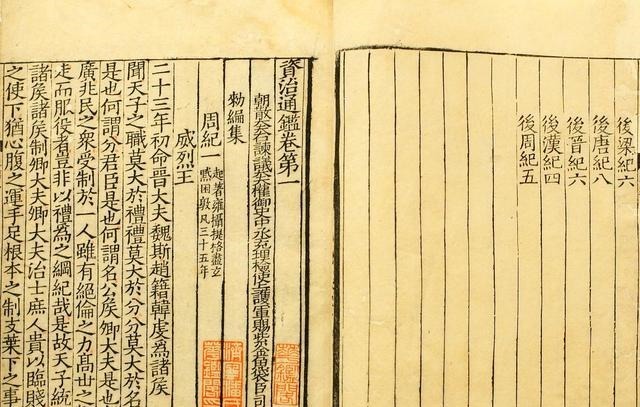 後梁紀六
後唐紀八
後晉紀六
後漢紀四
後周紀五
資治通鑑卷第一
朝散大夫右諫議大夫權御史中丞充理檢使上護軍賜紫金魚袋臣司
勑編集
周紀一
起著雍攝提格盡玄
黓困敦凡三十五年
威烈王
二十三年初命晉大夫魏斯趙籍韓虔爲諸矦
聞天子之職莫大於禮禮莫大於分分莫大於名
是也何謂分君臣是也何謂名公矦卿大夫是也
廣兆民之衆受制於一人雖有絕倫之力高世之
走而服役者豈非以禮爲之綱紀哉是故天子統
諸矦諸矦制卿大夫卿大夫治士庶人貴以臨賤
之使下猶心腹之運手足根本之制支葉下之事